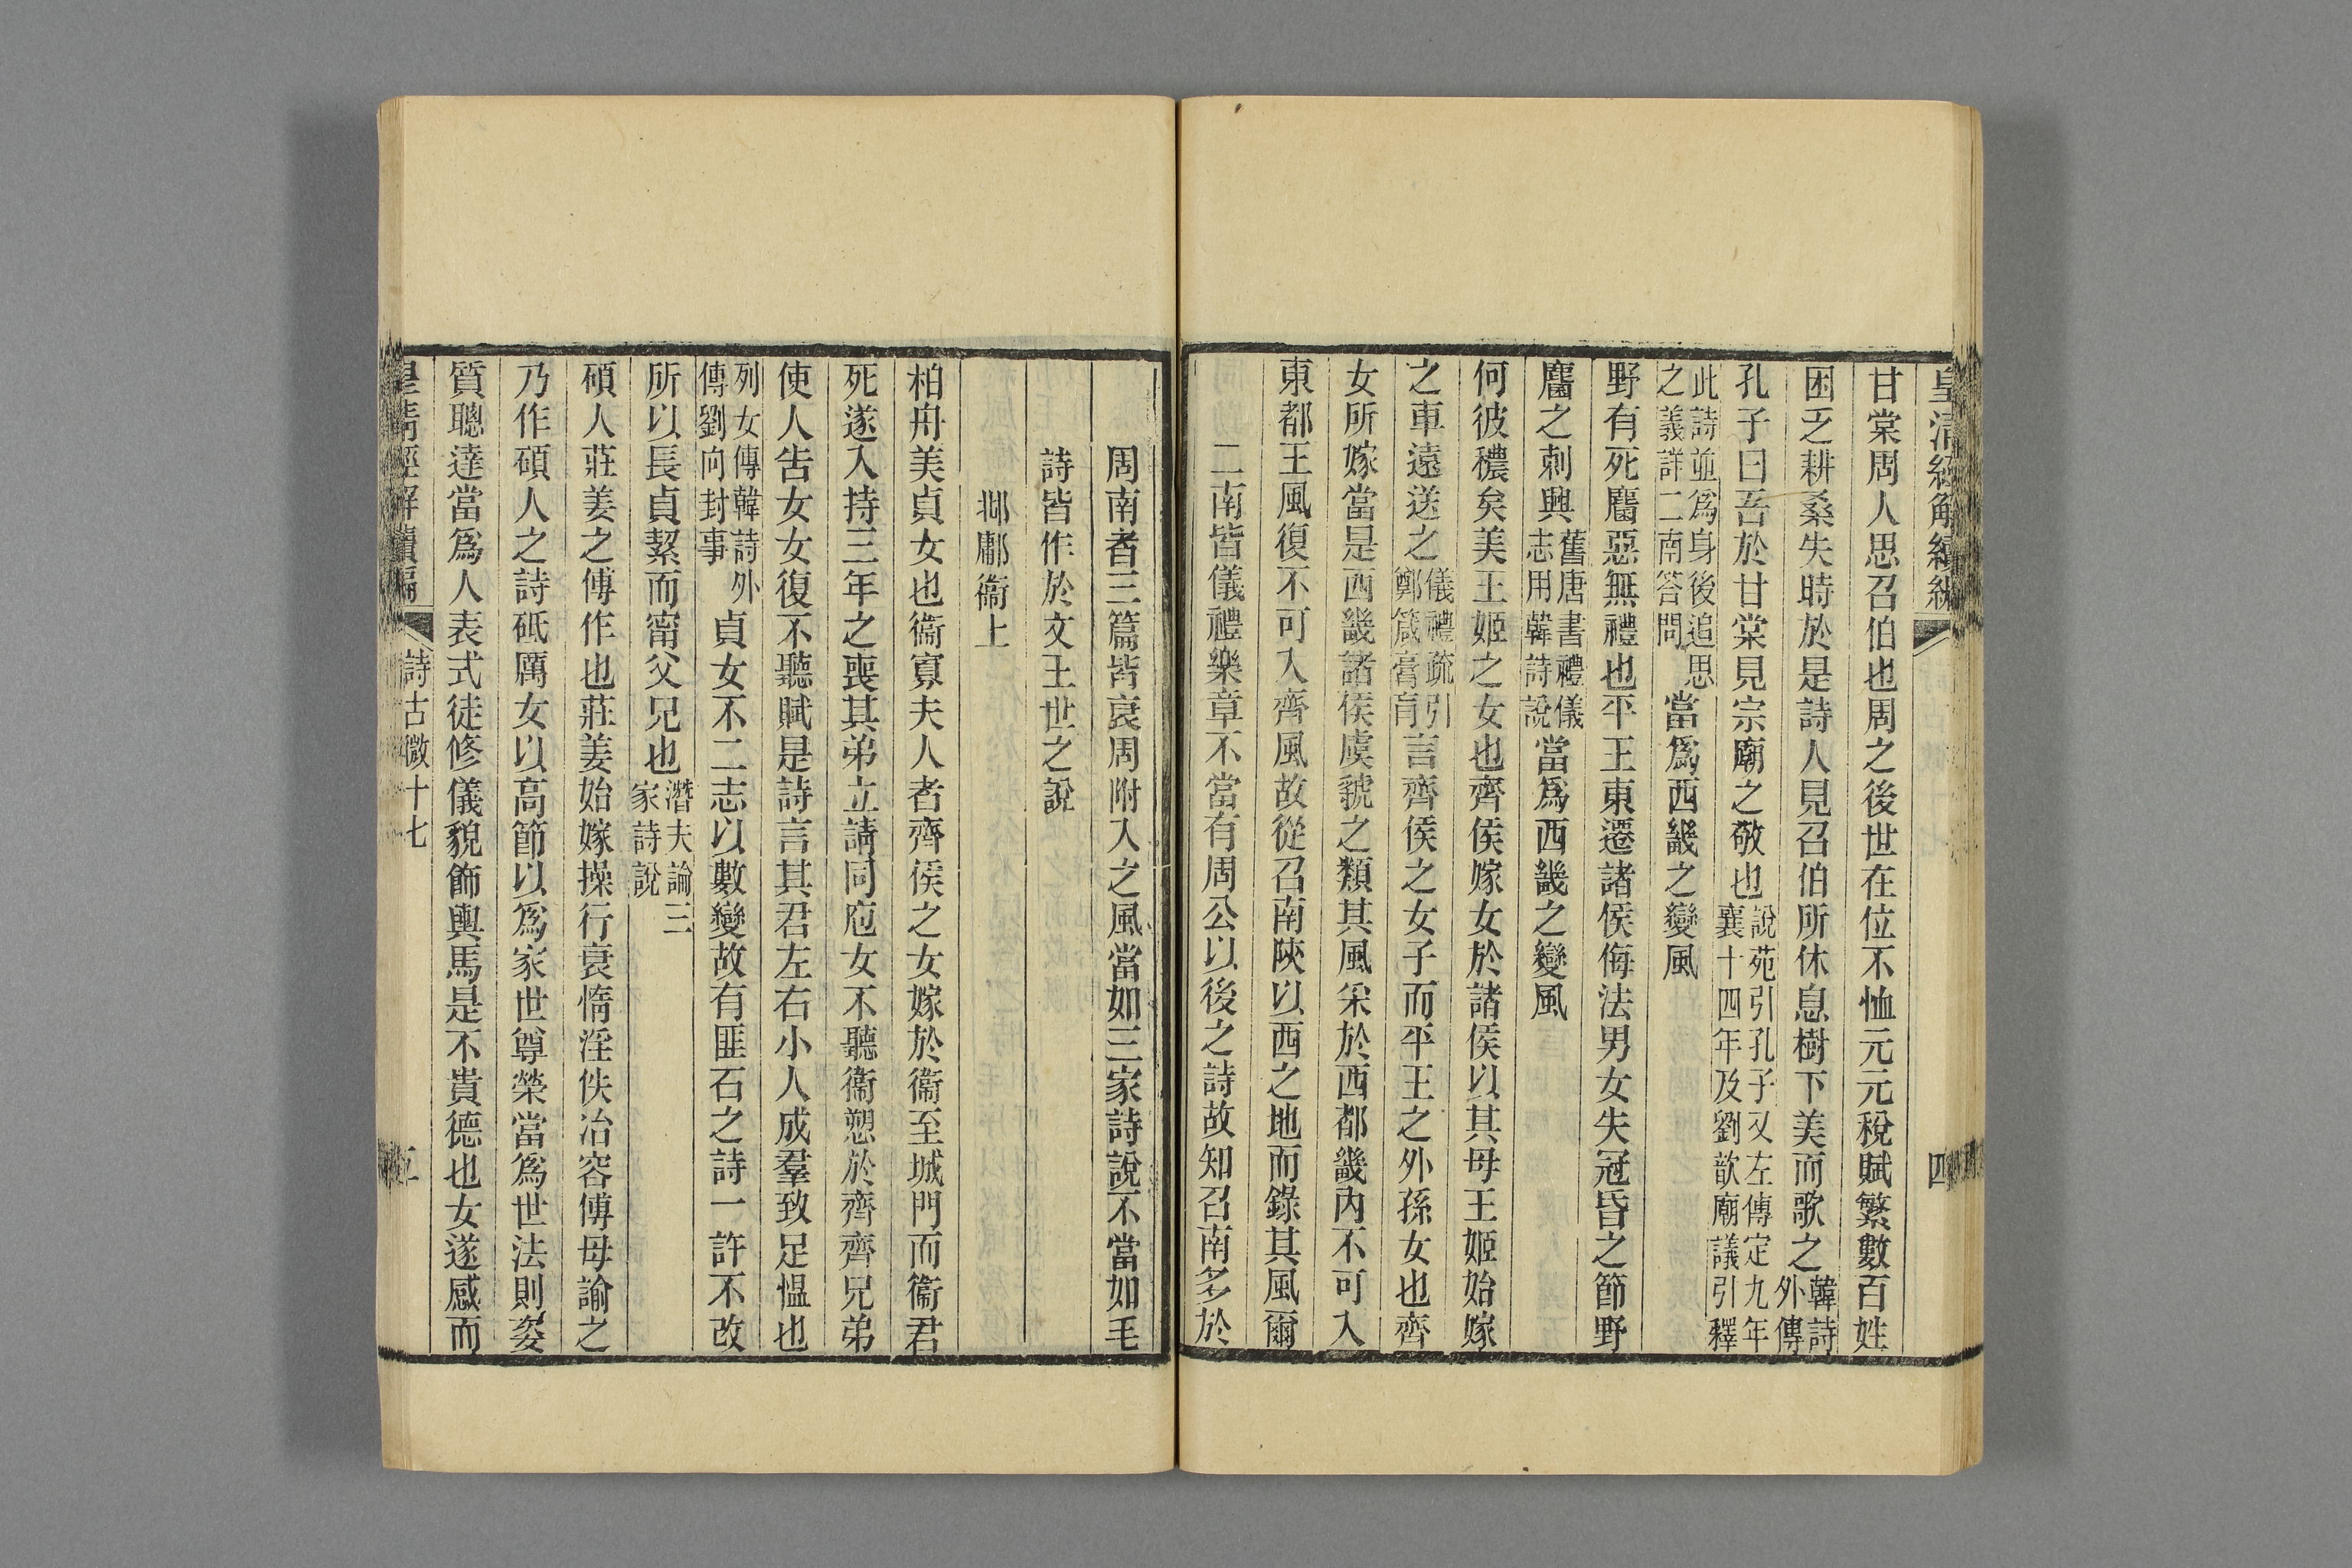 皇清經解續編
四
甘棠周人思召伯也周之後世在位不恤元元稅賦繁數百姓
困乏耕桑失時於是詩人見召伯所休息樹下美而歌之韓詩外傳
孔子曰吾於甘棠見宗廟之敬也說苑引孔子又左傳定九年襄十四年及劉歆廟議引釋
此詩並為身後追思之義詳二南答問當為西畿之變風
野有死麕惡無禮也平王東遷諸侯侮法男女失冠昏之節野
麕之刺興舊唐書禮儀志用韓詩說當為西畿之變風
何彼穠矣美王姬之女也齊侯嫁女於諸侯以其母王姬始嫁
之車遠送之儀禮疏引鄭箴膏肓言齊侯之女子而平王之外孫女也齊
女所嫁當是西畿諸侯虞虢之類其風采於西都畿內不可入
東都王風復不可入齊風故從召南陝以西之地而錄其風爾
二南皆儀禮樂章不當有周公以後之詩故知召南多於
周南者三篇皆衰周附入之風當如三家詩說不當如毛
詩皆作於文王世之說
邶鄘衞上
柏舟美貞女也衞寡夫人者齊侯之女嫁於衞至城門而衞君
死遂入持三年之喪其弟立請同庖女不聽衞愬於齊齊兄弟
使人告女女復不聽賦是詩言其君左右小人成羣致足愠也
列女傳韓詩外傳劉向封事貞女不二志以數變故有匪石之詩一許不改
所以長貞絜而甯父兄也潛夫論三家詩說
碩人莊姜之傅作也莊姜始嫁操行衰惰淫佚冶容傅母諭之
乃作碩人之詩砥厲女以高節以為家世尊榮當為世法則姿
質聰達當為人表式徒修儀貌飾輿馬是不貴德也女遂感而
皇清經解續編
詩古微十七
五